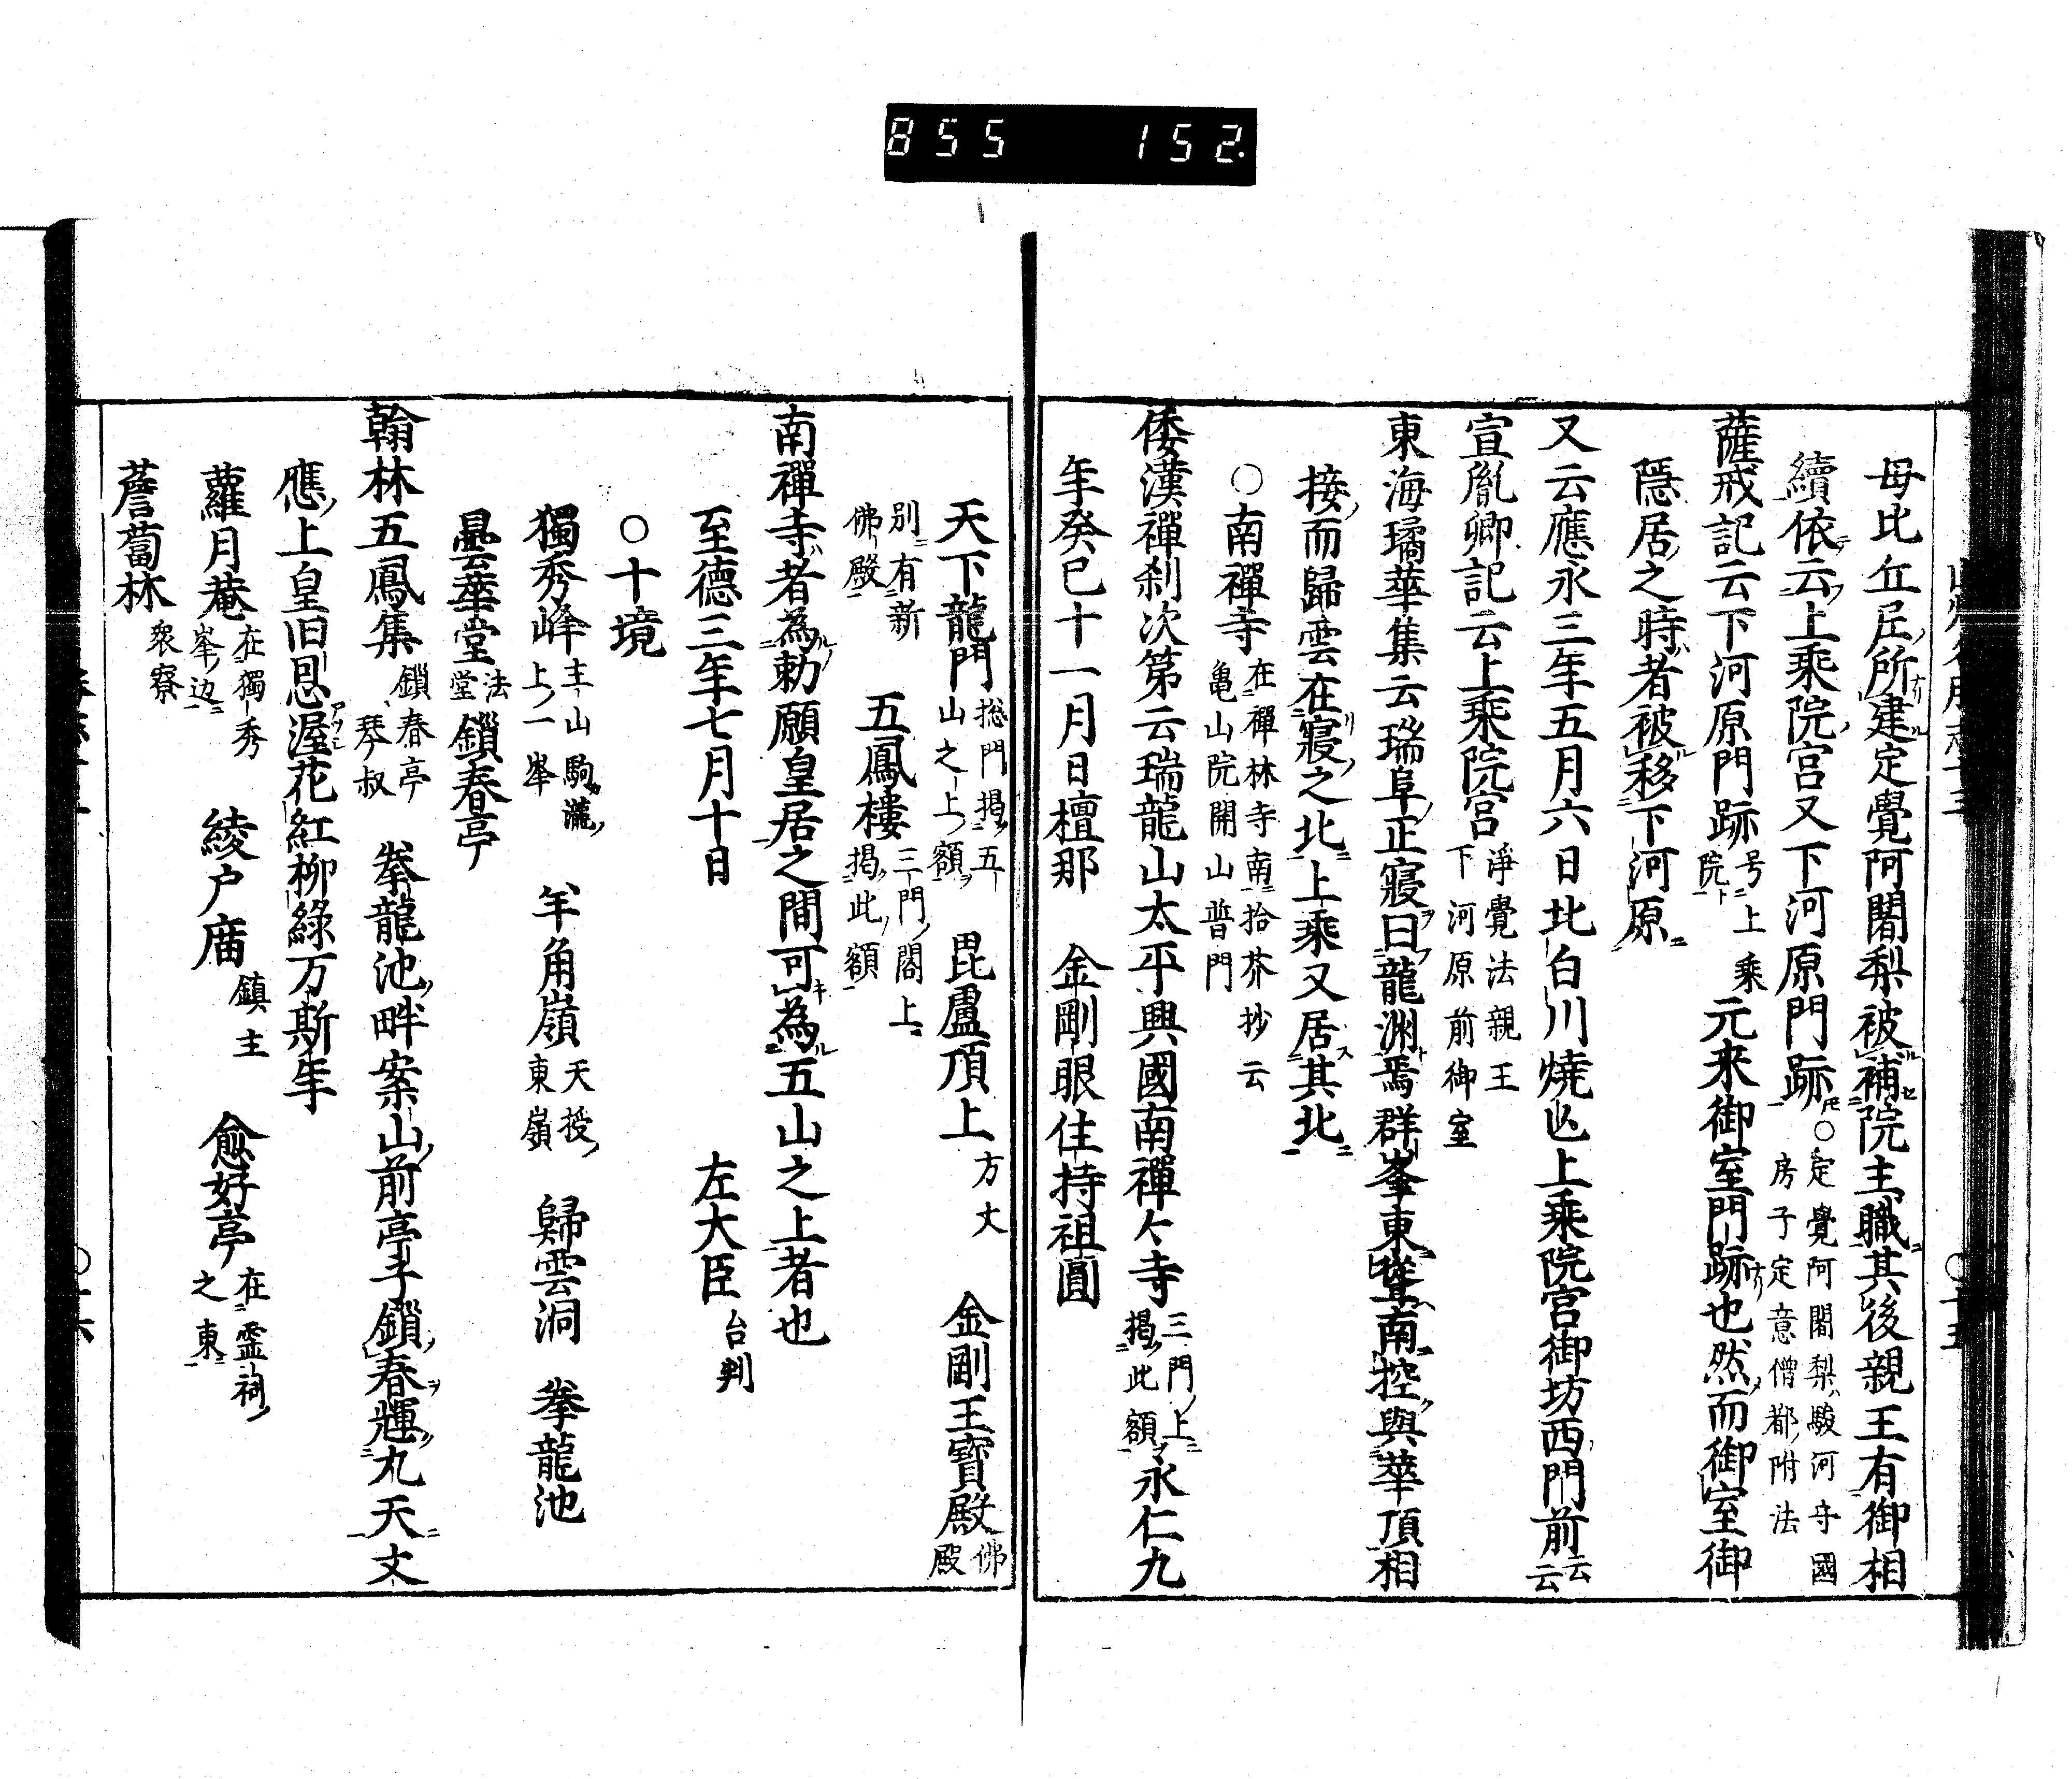 855 152.
母比丘尼所建定覺阿闍梨被補院主職其後親王有御相
續依云上乘院宮又下河原門跡○定覺阿闍梨駿河守國房子定意僧都附法
薩戒記云下河原門跡号上乘院元来御室門跡也然而御室御
隠居之時者被移下河原
又云應永三年五月六日北白川燒亡上乘院宮御坊西門前云云
宣胤卿記云上乘院宮淨覺法親王下河原前御室
東海璚華集云瑞阜正寢曰龍洲焉群峯東聳南控與華頂相
接而歸雲在寢之北上乘又居其北
○南禪寺在禪林寺南拾芥抄云亀山院開山普門
倭漢禪刹次第云瑞龍山太平興國南禪々寺三門上掲此額永仁九
年癸巳十一月日檀那 金剛眼住持祖圓
天下龍門総門掲五山之上額 毘盧頂上方丈 金剛王寶殿佛殿
別有新佛殿 五鳳樓三門閣上掲此額
南禪寺者為勅願皇居之間可為五山之上者也
至德三年七月十日 左大臣台判
○十境
獨秀峰主山上一峯 駒瀧 羊角嶺天授東嶺 歸雲洞 拳龍池
曇華堂法堂 鎖春亭
翰林五鳳集鎖春亭琴叔 拳龍池畔案山前亭子鎖春輝九天丈
應上皇旧恩渥花紅柳綠万斯年
蘿月菴在獨秀峯边 綾戸廟鎮主 愈好亭在霊祠之東
薝蔔林衆寮